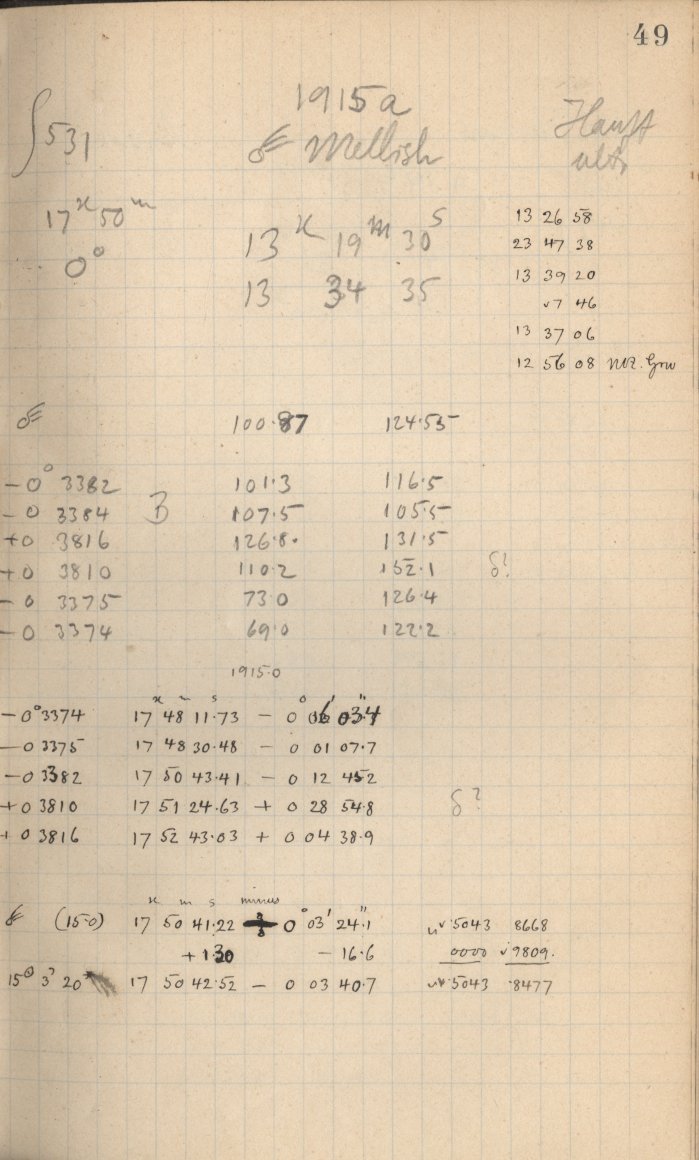 49
1915a
∫531
☄ Mellish
17ʰ 50ᵐ
0°
13ʰ 19ᵐ 30ˢ
13 34 35
13 26 58
23 47 38
13 39 20
7 46
13 37 06
12 56 08
☄ 100.87 124.55
-0° 3382 101.3 116.5
-0 3384 B 107.5 105.5
+0 3816 126.8. 131.5
+0 3810 110.2 152.1 δ?
-0 3375 73.0 126.4
-0 3374 69.0 122.2
1915.0
h m s ° ′ ″
-0° 3374 17 48 11.73 - 0 06 03.4
-0 3375 17 48 30.48 - 0 01 07.7
-0 3382 17 50 43.41 - 0 12 45.2
+0 3810 17 51 24.63 + 0 28 54.8 δ?
+0 3816 17 52 43.03 + 0 04 38.9
h m s minus
☄ (15.0) 17 50 41.22 0° 03′ 24″.1 .5043 8668
+1.30 - 16.6 0000 9809.
15° 3′ 20 17 50 42.52 - 0 03 40.7 .5043 .8477